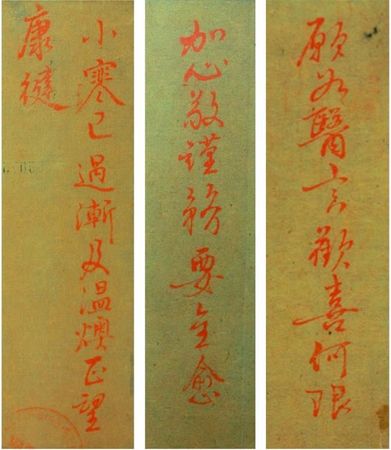 願如醫言歡喜何限
加心敬謹務要全愈
小寒已過漸及溫燠正望
康健